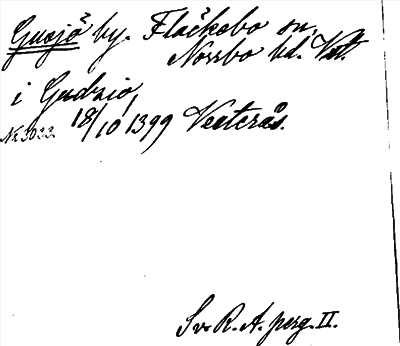 Gusjö by. Fläckebo sn,
Norrbo hd. Vstl.
i Gudzio,
18/10 1399 Vesterås.
No 3033.
Sv. R. A. perg. II.